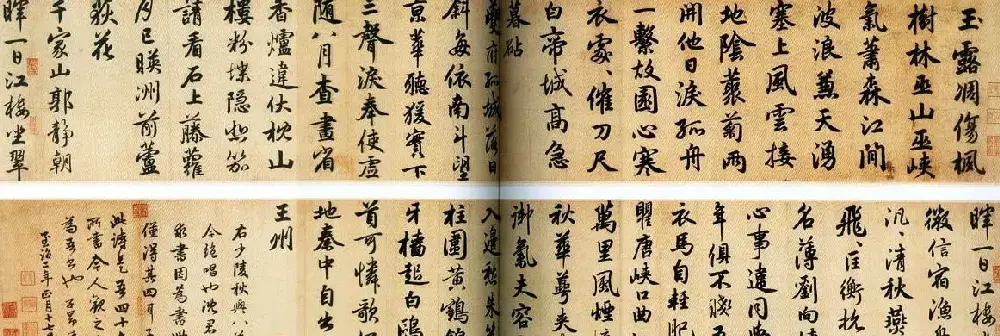 玉露凋傷楓
樹林巫山巫峽
氣蕭森江間
波浪兼天湧
塞上風雲接
地陰藂菊兩
開他日淚孤舟
一繫故園心寒
衣處〻催刀尺
白帝城高急
暮砧
夔府孤城落日
斜每依南斗望
京華聽猨實下
三聲淚奉使虛
隨八月查畫省
香爐違伏枕山
樓粉堞隱悲笳
請看石上藤蘿
月已暎洲前蘆
荻花
千家山郭靜朝
暉一日江樓坐翠
暉一日江樓
微信宿漁
汎〻清秋燕
飛〻匡衡抗
名薄劉向
心事違同
年俱不賤五
衣馬自輕肥
瞿唐峽口曲
萬里風煙
秋華萼夾
御氣夫容
入邊愁朱
柱圍黃鵠
牙檣起白鷗
首可憐歌
地秦中自古
王州
右少陵秋興八
今絕唱也沈君
求書因為書
僅得其四耳
此詩是吾四十
所書今人觀之
為吾書也
至治二年正月十七日